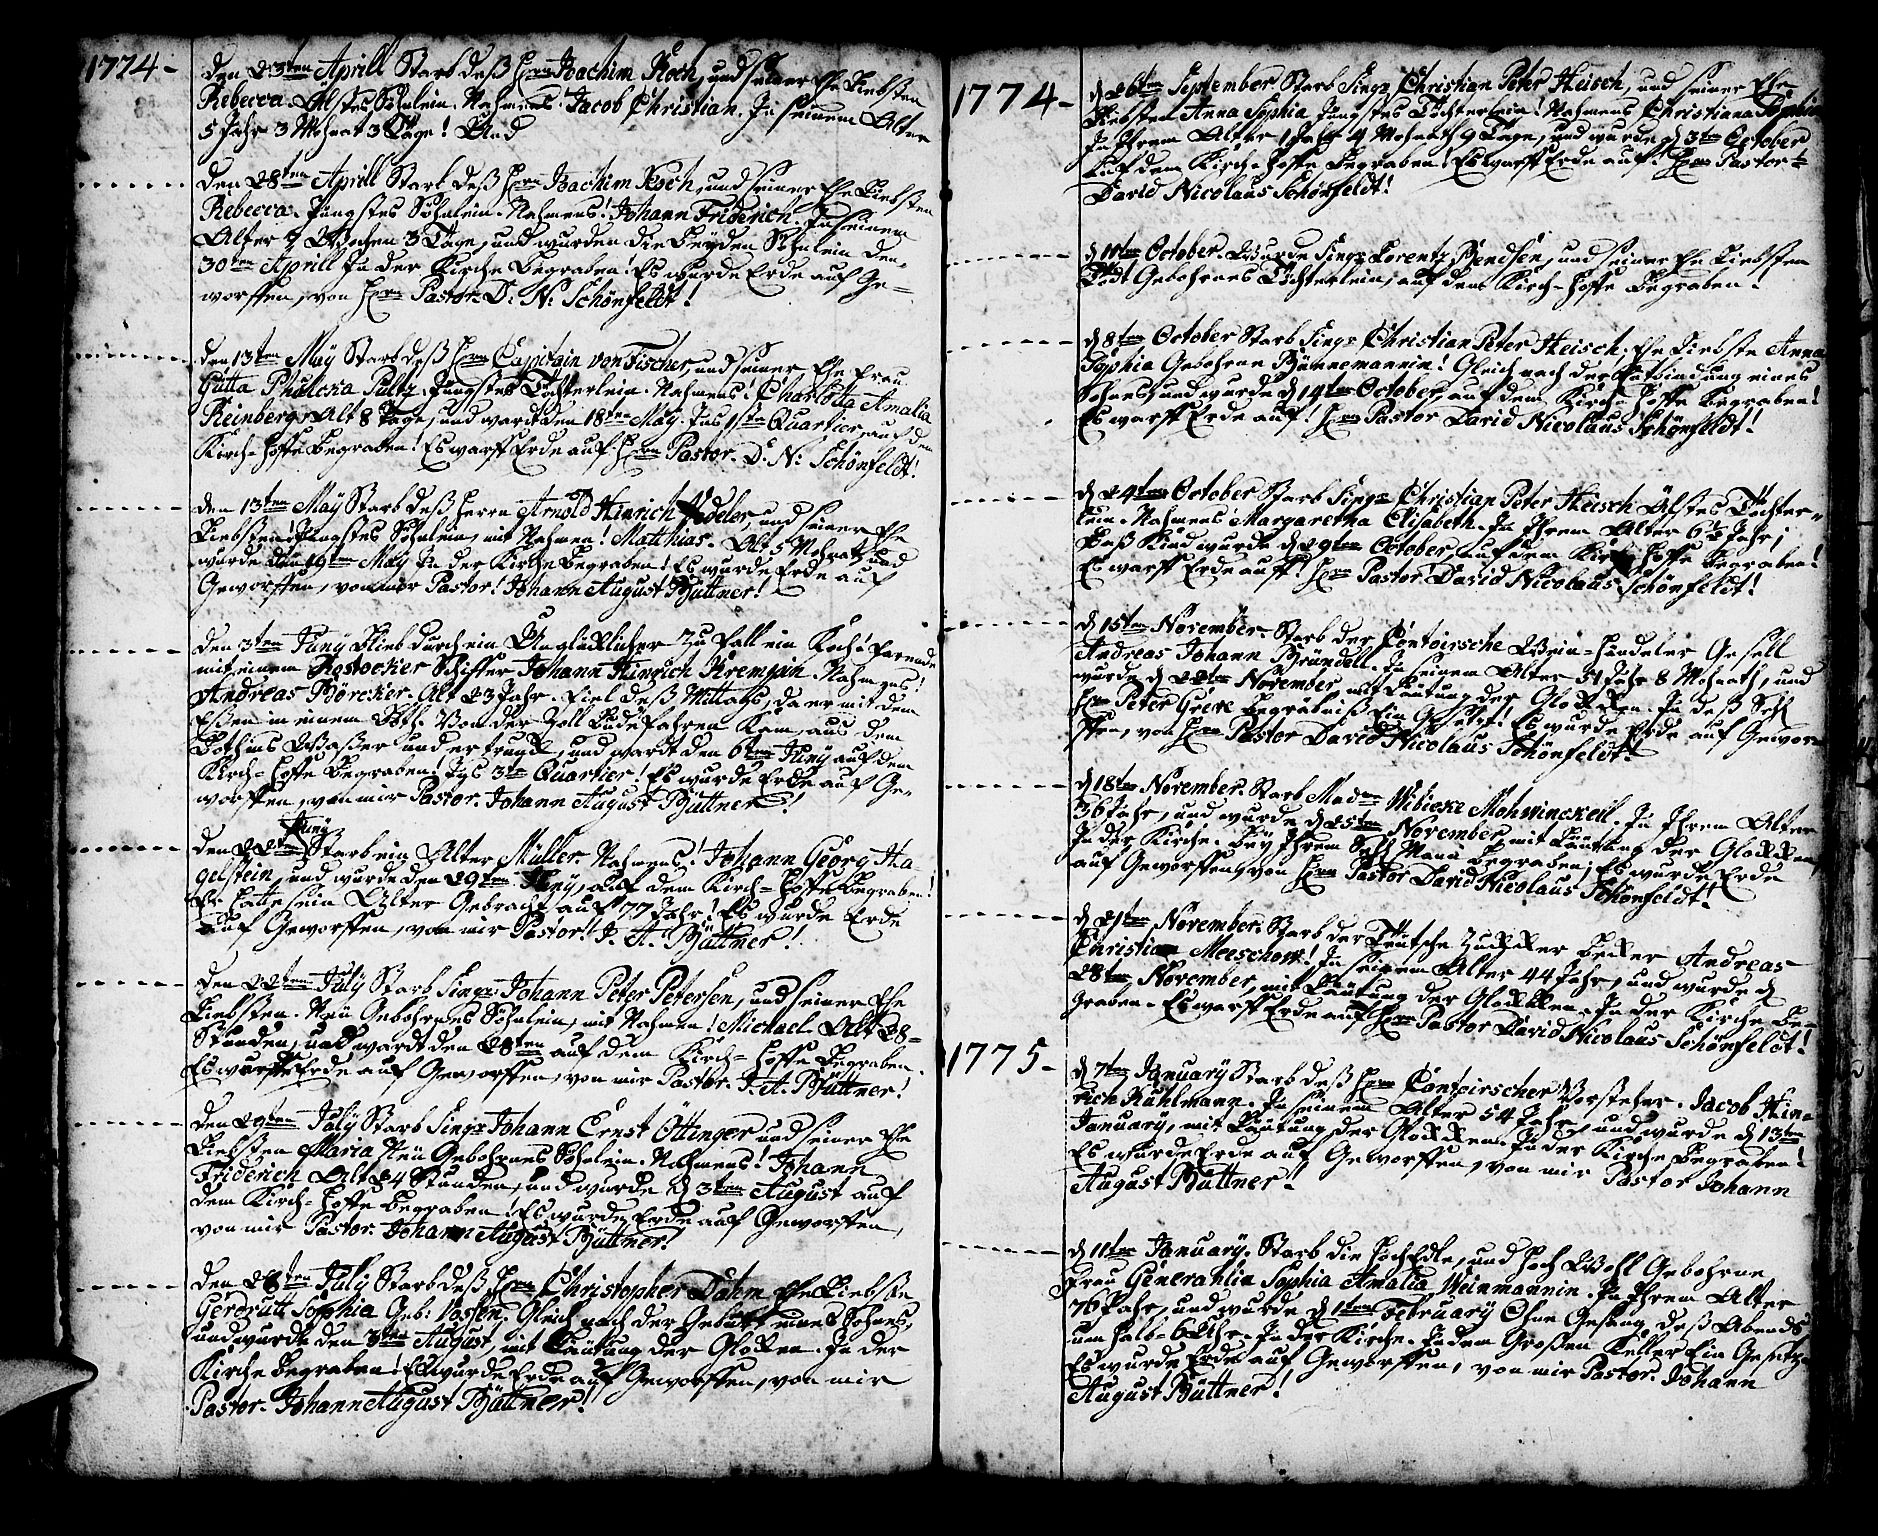 1774-
Den 23ten Aprill Starb deß Hrrn Joachim Koch, und seiner Ehe Liebsten
Rebecca. Ältstes Söhnlein. Nahmens! Jacob Christian. In seinem Alter
5 Jahr 3 Mohnat 3 Tage! Und
Den 28ten Aprill Starb deß Hrrn Joachim Koch, und seiner Ehe Liebsten
Rebecca. Jüngstes Söhnlein. Nahmens! Johann Friderich. In seinem
Alter Wochen 3 Tage, und wurden die Beyden Söhnlein den
30ten Aprill In der Kirche Begraben! Es wurde Erde auf Ge-
worffen, von Hrrn Pastor. D: N: Schönfeldt!
Den 13ten Maÿ Starb deß Hrrn Capitain von Fischer, und seiner Ehe Frau
Gutta Jüngstes Töchterlein. Nahmens! Charlotta Amalia
Reinberg. Alt 8 Tage, und wardt den 18ten Maÿ. Ins 1ste Quartier, auf dem
Kirch-Hoffe Begraben! Es warff Erde auf Hrrn Pastor. D: N: Schönfeldt!
Den 13ten Maÿ Starb deß Herrn Arnold Hinrich und seiner Ehe
Liebsten! Jüngstes Söhnlein, mit Nahmen! Matthias. Alt 5 Mohnat, und
wurde den 19ten Maÿ In der Kirche Begraben! Es wurde Erde auf
Geworffen, von mir Pastor! Johann August Büttner!
Den 3ten Junÿ Blieb durch ein Unglücklicher Zufall ein Koch!
mit einem Rostocker Schiffer Johann Hinrich Nahmens!
Andreas Börcker. Alt 23 Jahr. Fiel deß Mittags, da er mit dem
Eßen in einem Both. Von der Zoll Bude fahren kam, aus dem
Both ins Waßer und ertrunck, und wardt den 6ten Junÿ auf dem
Kirch-Hoffe Begraben! Ins 3te Quartier! Es wurde Erde auf Ge-
worffen, von mir Pastor. Johann August Büttner!
Junÿ
Den 22ten Starb ein Alter Müller. Nahmens! Johann Georg Ha
gelstein, und wurde den 29ten Junÿ, auf dem Kirch-Hoffe Begraben!
Er hatte sein Alter Gebracht auf 77 Jahr! Es wurde Erde
Auf Geworffen, von mir Pastor! J. A. Büttner!
Den 22ten Julÿ Starb Sing: Johann Peter Petersen, und seiner Ehe
Liebsten. Neü Gebohrnes Söhnlein, mit Nahmen! Michael. Alt 28-
Stunden, und wardt den 28ten auf dem Kirch-Hoffe Begraben.
Es wurde Erde auf Geworffen, von mir Pastor. J. A. Büttner!
Den 29ten Julÿ Starb Sing: Johann Ernst Öttinger und seiner Ehe
Liebsten Maria Neü Gebohrnes Söhnlein. Nahmens! Johann
Friderich Alt 24 Stunden, und wurde d 3ten August auf
dem Kirch-Hoffe Begraben! Es wurde Erde auf Geworffen,
von mir Pastor. Johann August Büttner!
Den 28ten Julÿ Starb deß Hrrn Christopher Dahm Ehe Liebste
Gerdrutt Sophia Geb: Vosen. Gleich nach der Gebuhrt eines Sohnes,
und wurde den 3ten August, mit Läutung der Glocken. In der
Kirche Begraben! Es wurde Erde auf Geworffen, von mir
Pastor. Johann August Büttner!
1774-
d 26ten September Starb Sing: Christian Peter Heisch, und seiner Ehe-
Liebsten Anna Sophia Jüngstes Töchterlein! Nahmens Christiana Sophia
In Ihrem Alter 1 Jahr 4 Mohnath 9 Tage, und wurde d 3ten October
Auf dem Kirch-Hoffe Begraben! Es warff Erde auf! Hrrn Pastor-
David Nicolaus Schönfeldt!
d 11ten October. Wurde Sing: Lorentz Bendsen, und seiner Ehe Liebsten
Todt Gebohrnes Töchterlein, auf dem Kirch-Hoffe Begraben.
d 8ten October Starb Sing: Christian Peter Heisch. Ehe Liebste Anna
Sophia Gebohrne Bünnemannin! Gleich nach der Entbindung eines
Sohnes, und wurde d 14ten October, auf dem Kirch-Hoffe Begraben!
Es warff Erde auf! Hrrn Pastor David Nicolaus Schönfeldt!
d 24ten October Starb Sing: Christian Peter Heisch Ältstes Töchter-
lein. Nahmens Margaretha Elisabeth. In Ihrem Alter 6½ Jahr;
Daß Kind wurde d 29ten October, auf dem Kirch-Hoffe Begraben!
Es warff Erde auff! Hrrn Pastor David Nicolaus Schönfeldt!
d 15ten November. Starb der Contoirsche Wein-Händeler Gesell
Andreas Johann Bründell. In seinem Alter 31 Jahr 8 Mohnath, und
wurde d 22ten November mit Läutung der Glocken. In deß Sehl
Hrrn Peter Greve Begräbniß Ein Gesetzt! Es wurde Erde auf Gewor-
ffen, von Hrrn Pastor David Nicolaus Schönfeldt!
d 18ten November. Starb Madm Wibicke Mohwinckell. In Ihrem Alter
36 Jahr, und wurde d 25ten November, mit Läutung der Glocken,
In der Kirche. Beÿ Ihrem Sehl Mann Begraben; Es wurde Erde
auf Geworffen, von Hrrn Pastor David Nicolaus Schönfeldt!
d 21ten November. Starb der Teütsche Zucker Becker Andreas
Christian Meeschow! In seinem Alter 44 Jahr, und wurde d
28ten November, mit Läutung der Glocken. In der Kirche Be-
graben. Es warff Erde auf Hrrn Pastor David Nicolaus Schönfeldt!
1775-
d 7ten Januarÿ Starb deß Hrrn Contoirscher Vorsteher. Jacob Hin-
rich Kühlmann. In seinem Alter 54 Jahr, und wurde d 13ten
Januarÿ, mit Läutung der Glocken. In der Kirche Begraben!
Es wurde Erde auf Geworffen, von mir Pastor Johann
August Büttner!
d 11ten Januarÿ. Starb die HochEdle, und Hoch Wohl Gebohrne
Frau Generahlin Sophia Amalia Weinmannin. In Ihrem Alter
76 Jahr, und wurde d 1ten Februarÿ Ohne Gesang, deß Abends
um halb-6 Uhr. In der Kirche. In dem Großen Keller Ein Gesetz-
Es wurde Erde auf Geworffen, von mir Pastor. Johann
August Büttner!